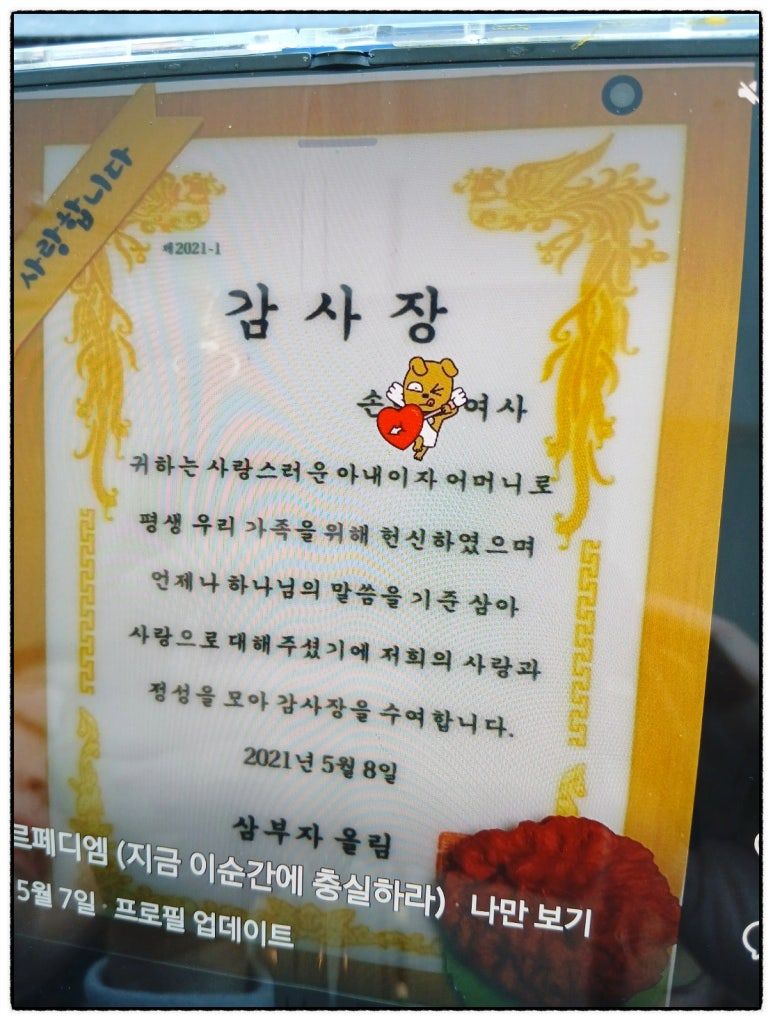 사랑합니다
제2021-1
감사장
손 여사
귀하는 사랑스러운 아내이자 어머니로
평생 우리 가족을 위해 헌신하였으며
언제나 하나님의 말씀을 기준 삼아
사랑으로 대해주셨기에 저희의 사랑과
정성을 모아 감사장을 수여합니다.
2021년 5월 8일
삼부자 올림
르페디엠 (지금 이순간에 충실하라) · 나만 보기
5월 7일 · 프로필 업데이트